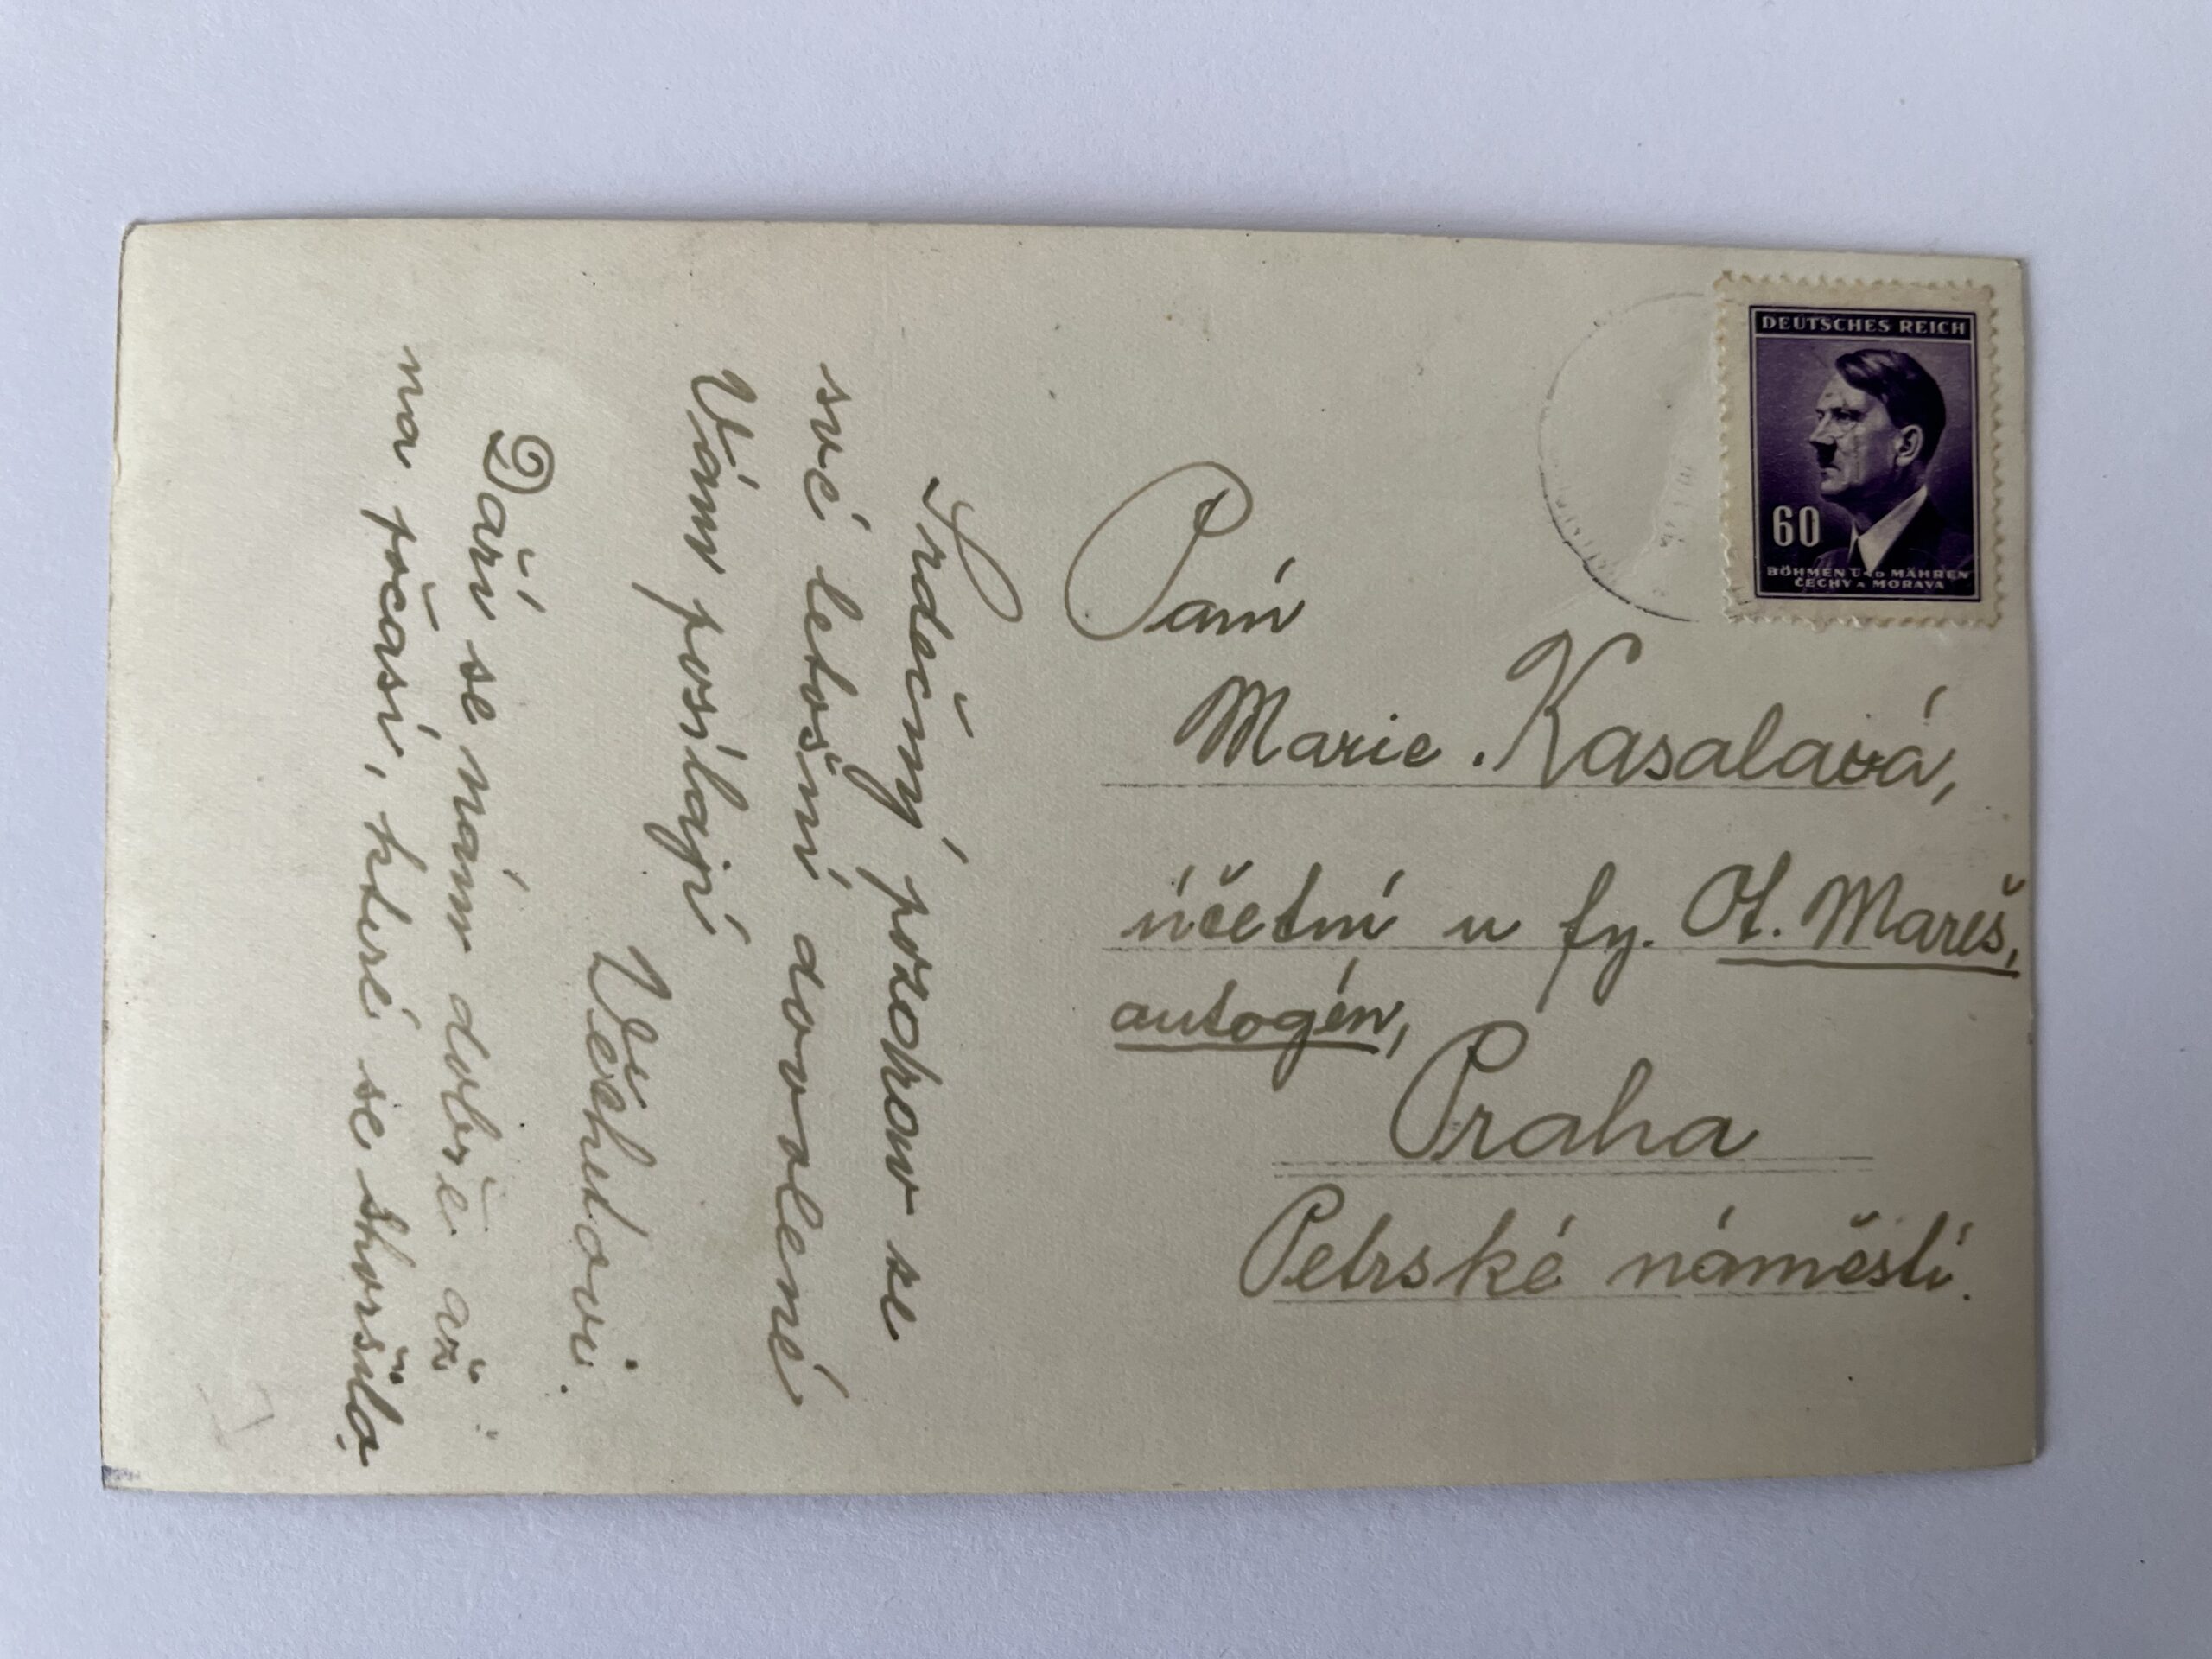 Srdečný pozdrav se
své letošní dovolené
Vám posílají
Věchetovi.
Daří se nám dobře až
na počasí, které se zhoršilo.
DEUTSCHES REICH
60
BÖHMEN UND MÄHREN
ČECHY A MORAVA
Paní
Marie Kasalová,
účetní u fy. Ot. Mareš,
autogén,
Praha
Petrské náměstí.